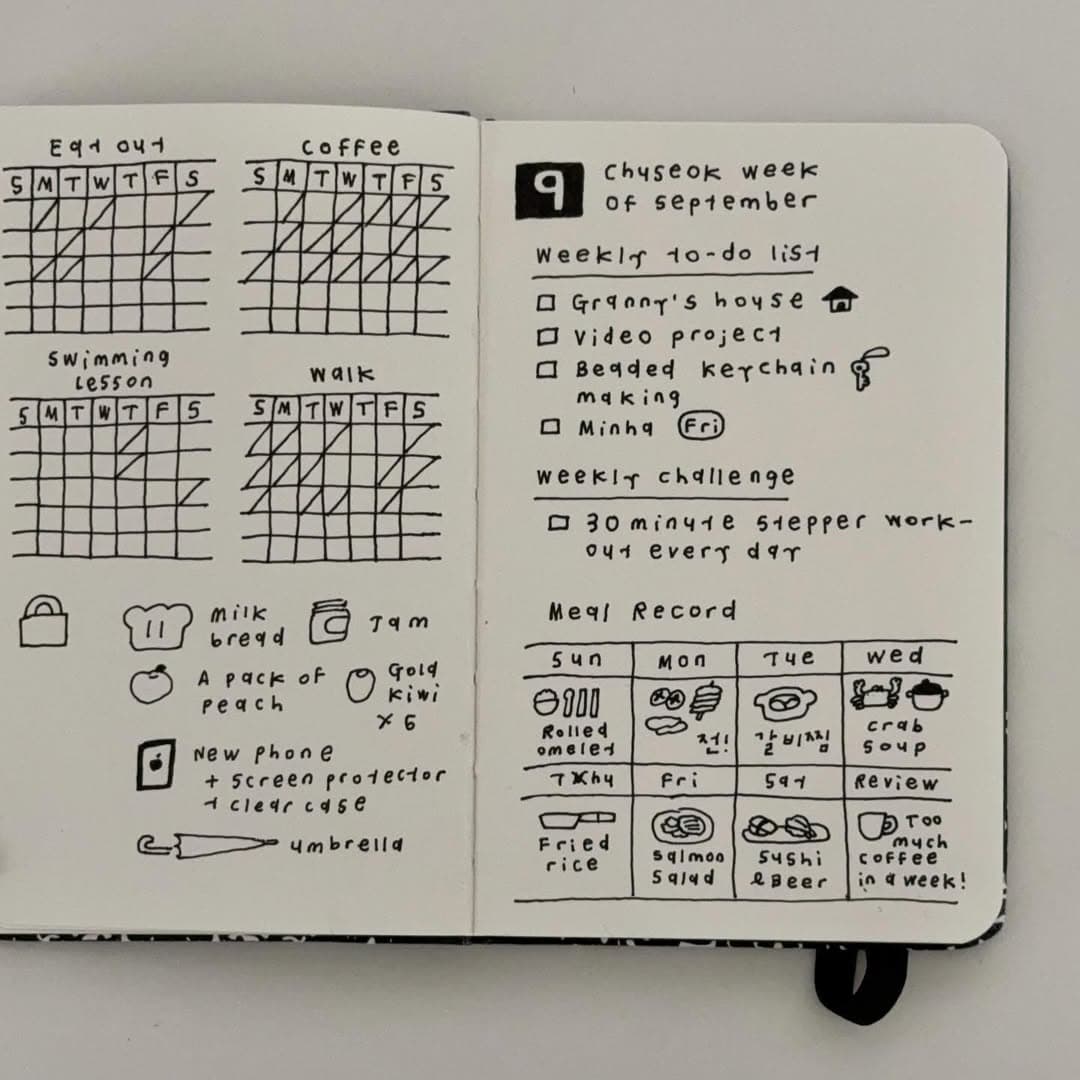 Eat out
S M T W T F S
coffee
S M T W T F S
swimming
lesson
S M T W T F S
walk
S M T W T F S
milk
bread
Jam
A pack of
peach
Gold
kiwi
x 6
New phone
+ screen protector
+ clear case
umbrella
9
chuseok week
of september
weekly to-do list
Granny's house
video project
Beaded keychain
making
Minha Fri
weekly challenge
30 minute stepper work-
out every day
Meal Record
Sun Mon Tue Wed
Rolled
omelet
전!
갈비찜
crab
soup
Thu Fri Sat Review
Fried
rice
salmon
salad
sushi
& Beer
Too
much
coffee
in a week!